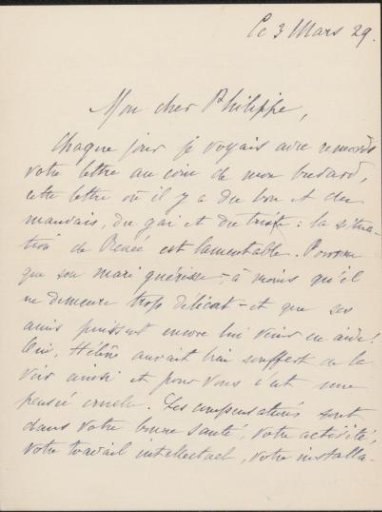 Le 3 Mars 29.
Mon cher Philippe,
Chaque jour je voyais avec remords
votre lettre au coin de mon buvard,
cette lettre où il y a du bon et du
mauvais, du gai et du triste : la situa-
tion de Renée est lamentable. Pourvu
que son mari guérisse - à moins qu'il
ne demeure trop délicat - et que ses
amis puissent encore lui venir en aide!
Oui, Hélène aurait bien souffert de la
voir ainsi et pour vous c'est une
pensée cruelle. Les compensations sont
dans votre bonne santé, votre activité,
votre travail intellectuel, votre installa-